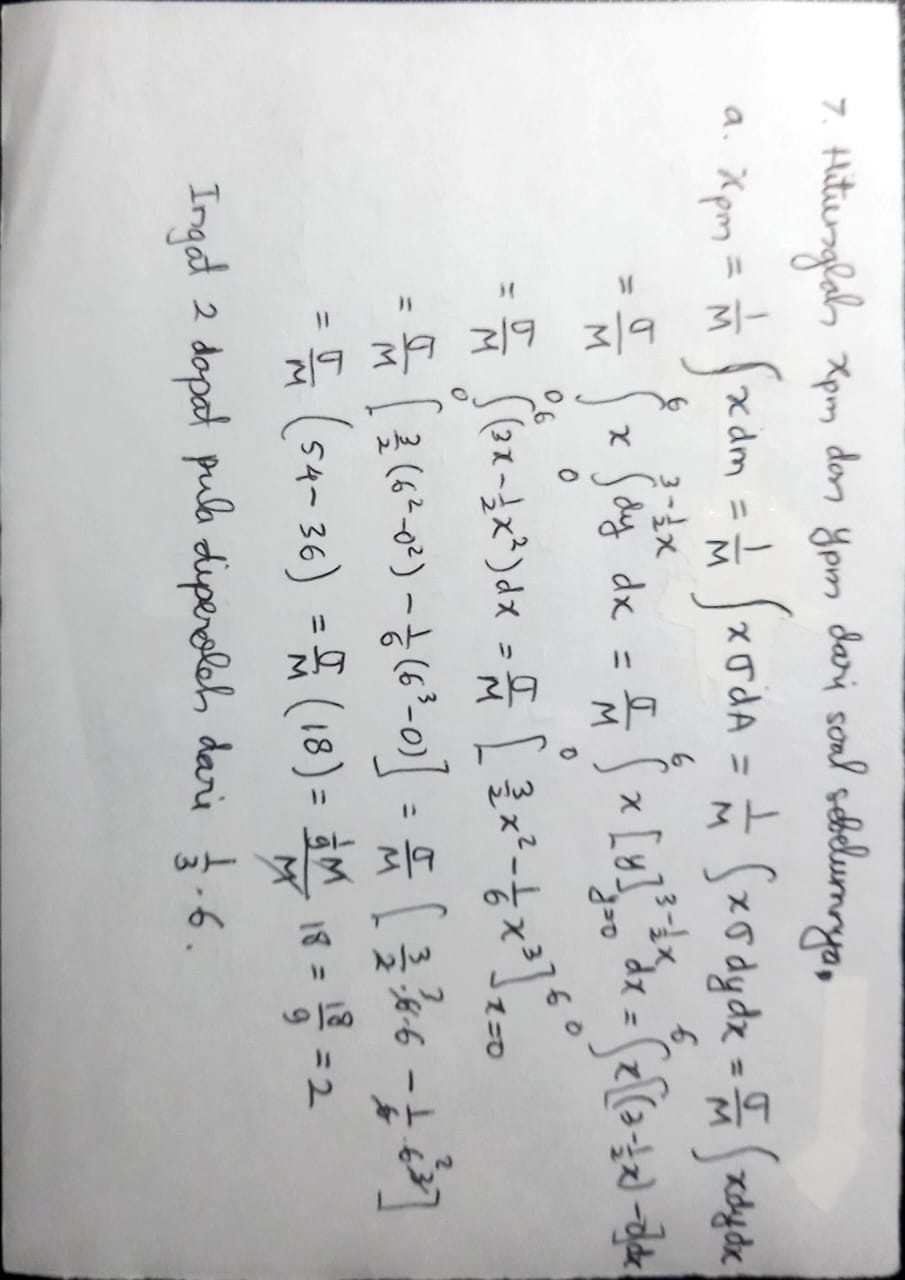 7. Hitunglah xpm dan ypm dari soal sebelumnya.
a. xpm = 1/M ∫ x dm = 1/M ∫ x σ dA = 1/M ∫ x σ dy dx = σ/M ∫ x dy dx
= σ/M ∫₀⁶ x ∫₀^(3-½x) dy dx = σ/M ∫₀⁶ x [y]_(y=0)^(3-½x) dx = ∫₀⁶ x[(3-½x) - 0] dx
= σ/M ∫₀⁶ (3x - ½x²) dx = σ/M [3/2 x² - 1/6 x³]_(x=0)^6
= σ/M [3/2 (6² - 0²) - 1/6 (6³ - 0)] = σ/M [3/2 · 6̸³ · 6 - 1/6̸ · 6^3̸²]
= σ/M (54 - 36) = σ/M (18) = (1/9 M)/M̸ 18 = 18/9 = 2
Ingat 2 dapat pula diperoleh dari 1/3 · 6.